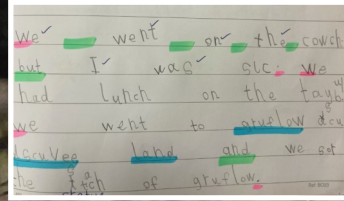 We went on the cowch
but I was sic. We
had lunch on the tayb
we went to gruflow dcu
dscuvee land and we got
the of gruflow.